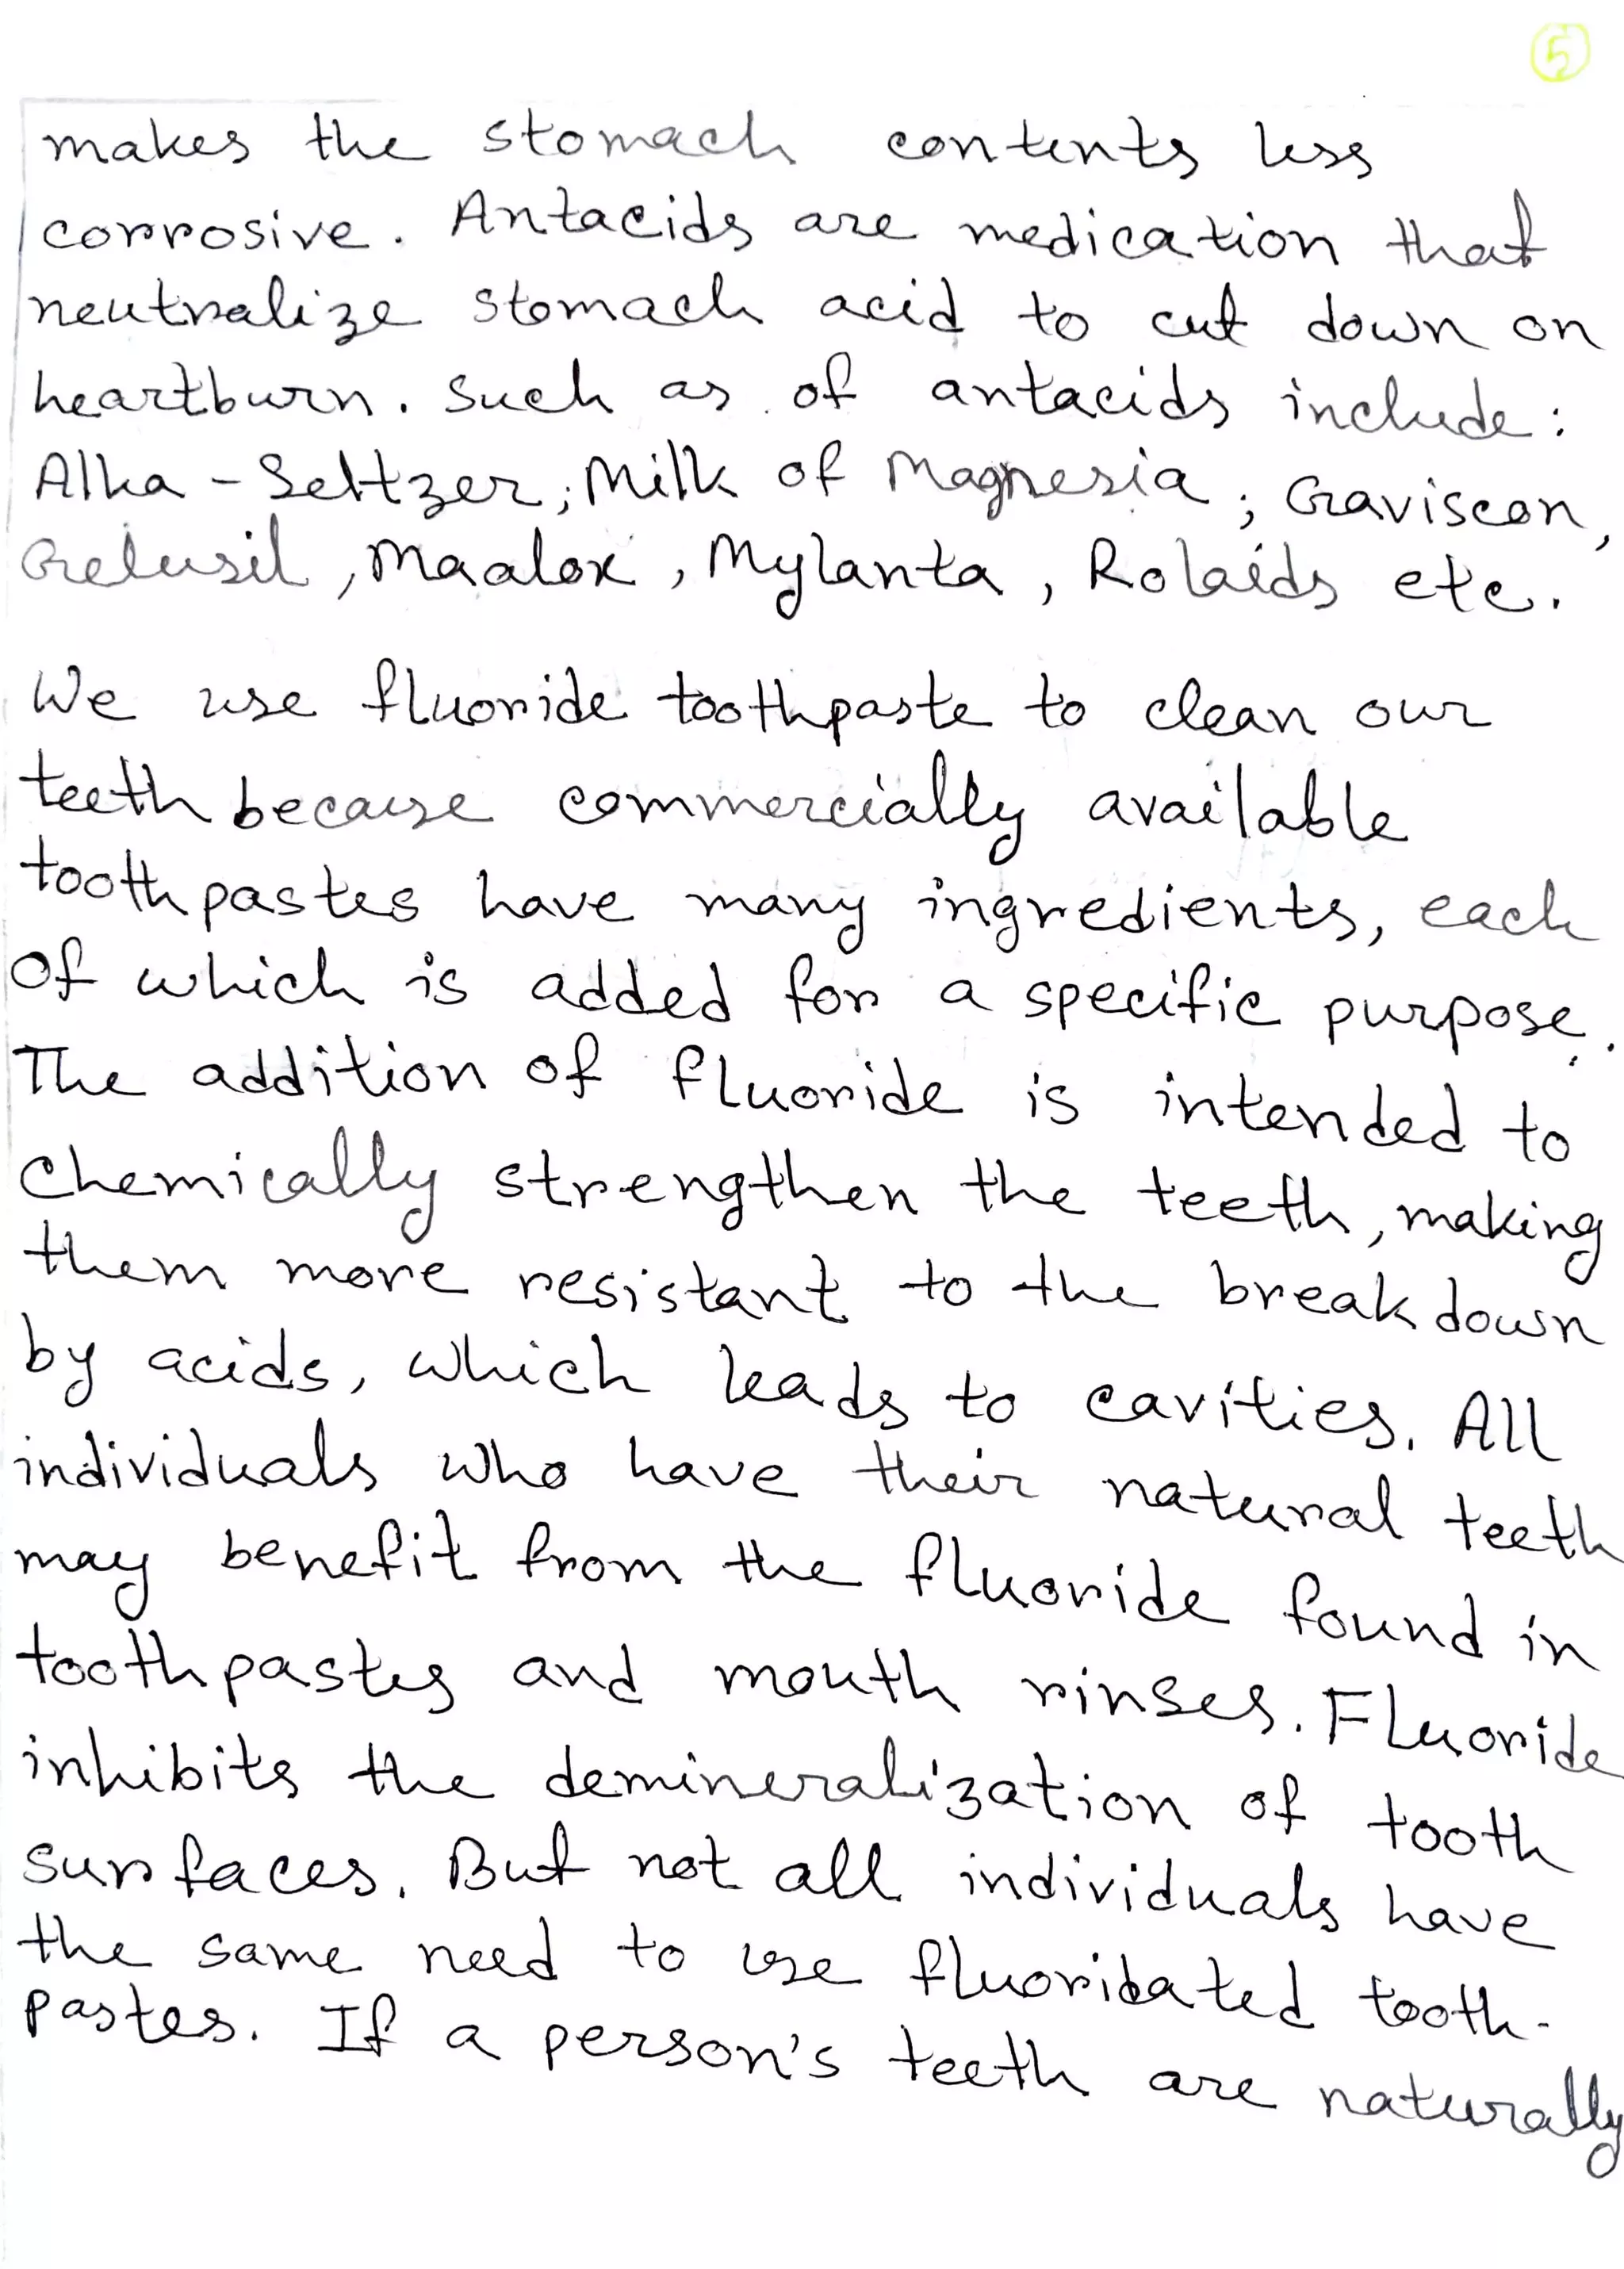 5
makes the stomach contents less
corrosive. Antacids are medication that
neutralize stomach acid to cut down on
heartburn. Such as of antacids include:
Alka-Seltzer; Milk of Magnesia; Gaviscon,
Gelusil, Maalox, Mylanta, Rolaids etc.
We use fluoride toothpaste to clean our
teeth because commercially available
toothpastes have many ingredients, each
of which is added for a specific purpose.
The addition of fluoride is intended to
chemically strengthen the teeth, making
them more resistant to the breakdown
by acids, which leads to cavities. All
individuals who have their natural teeth
may benefit from the fluoride found in
toothpastes and mouth rinses. Fluoride
inhibits the demineralization of tooth
surfaces. But not all individuals have
the same need to use fluoridated tooth-
pastes. If a person's teeth are naturally